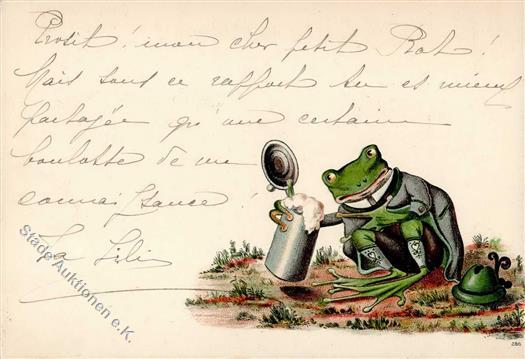 Prosit! mon cher petit Rat!
Mais sous ce rapport tu es mieux
partagée qu'une certaine
boulotte de ma
connaissance!
Ta Lili
Stade Auktionen e.K.
286